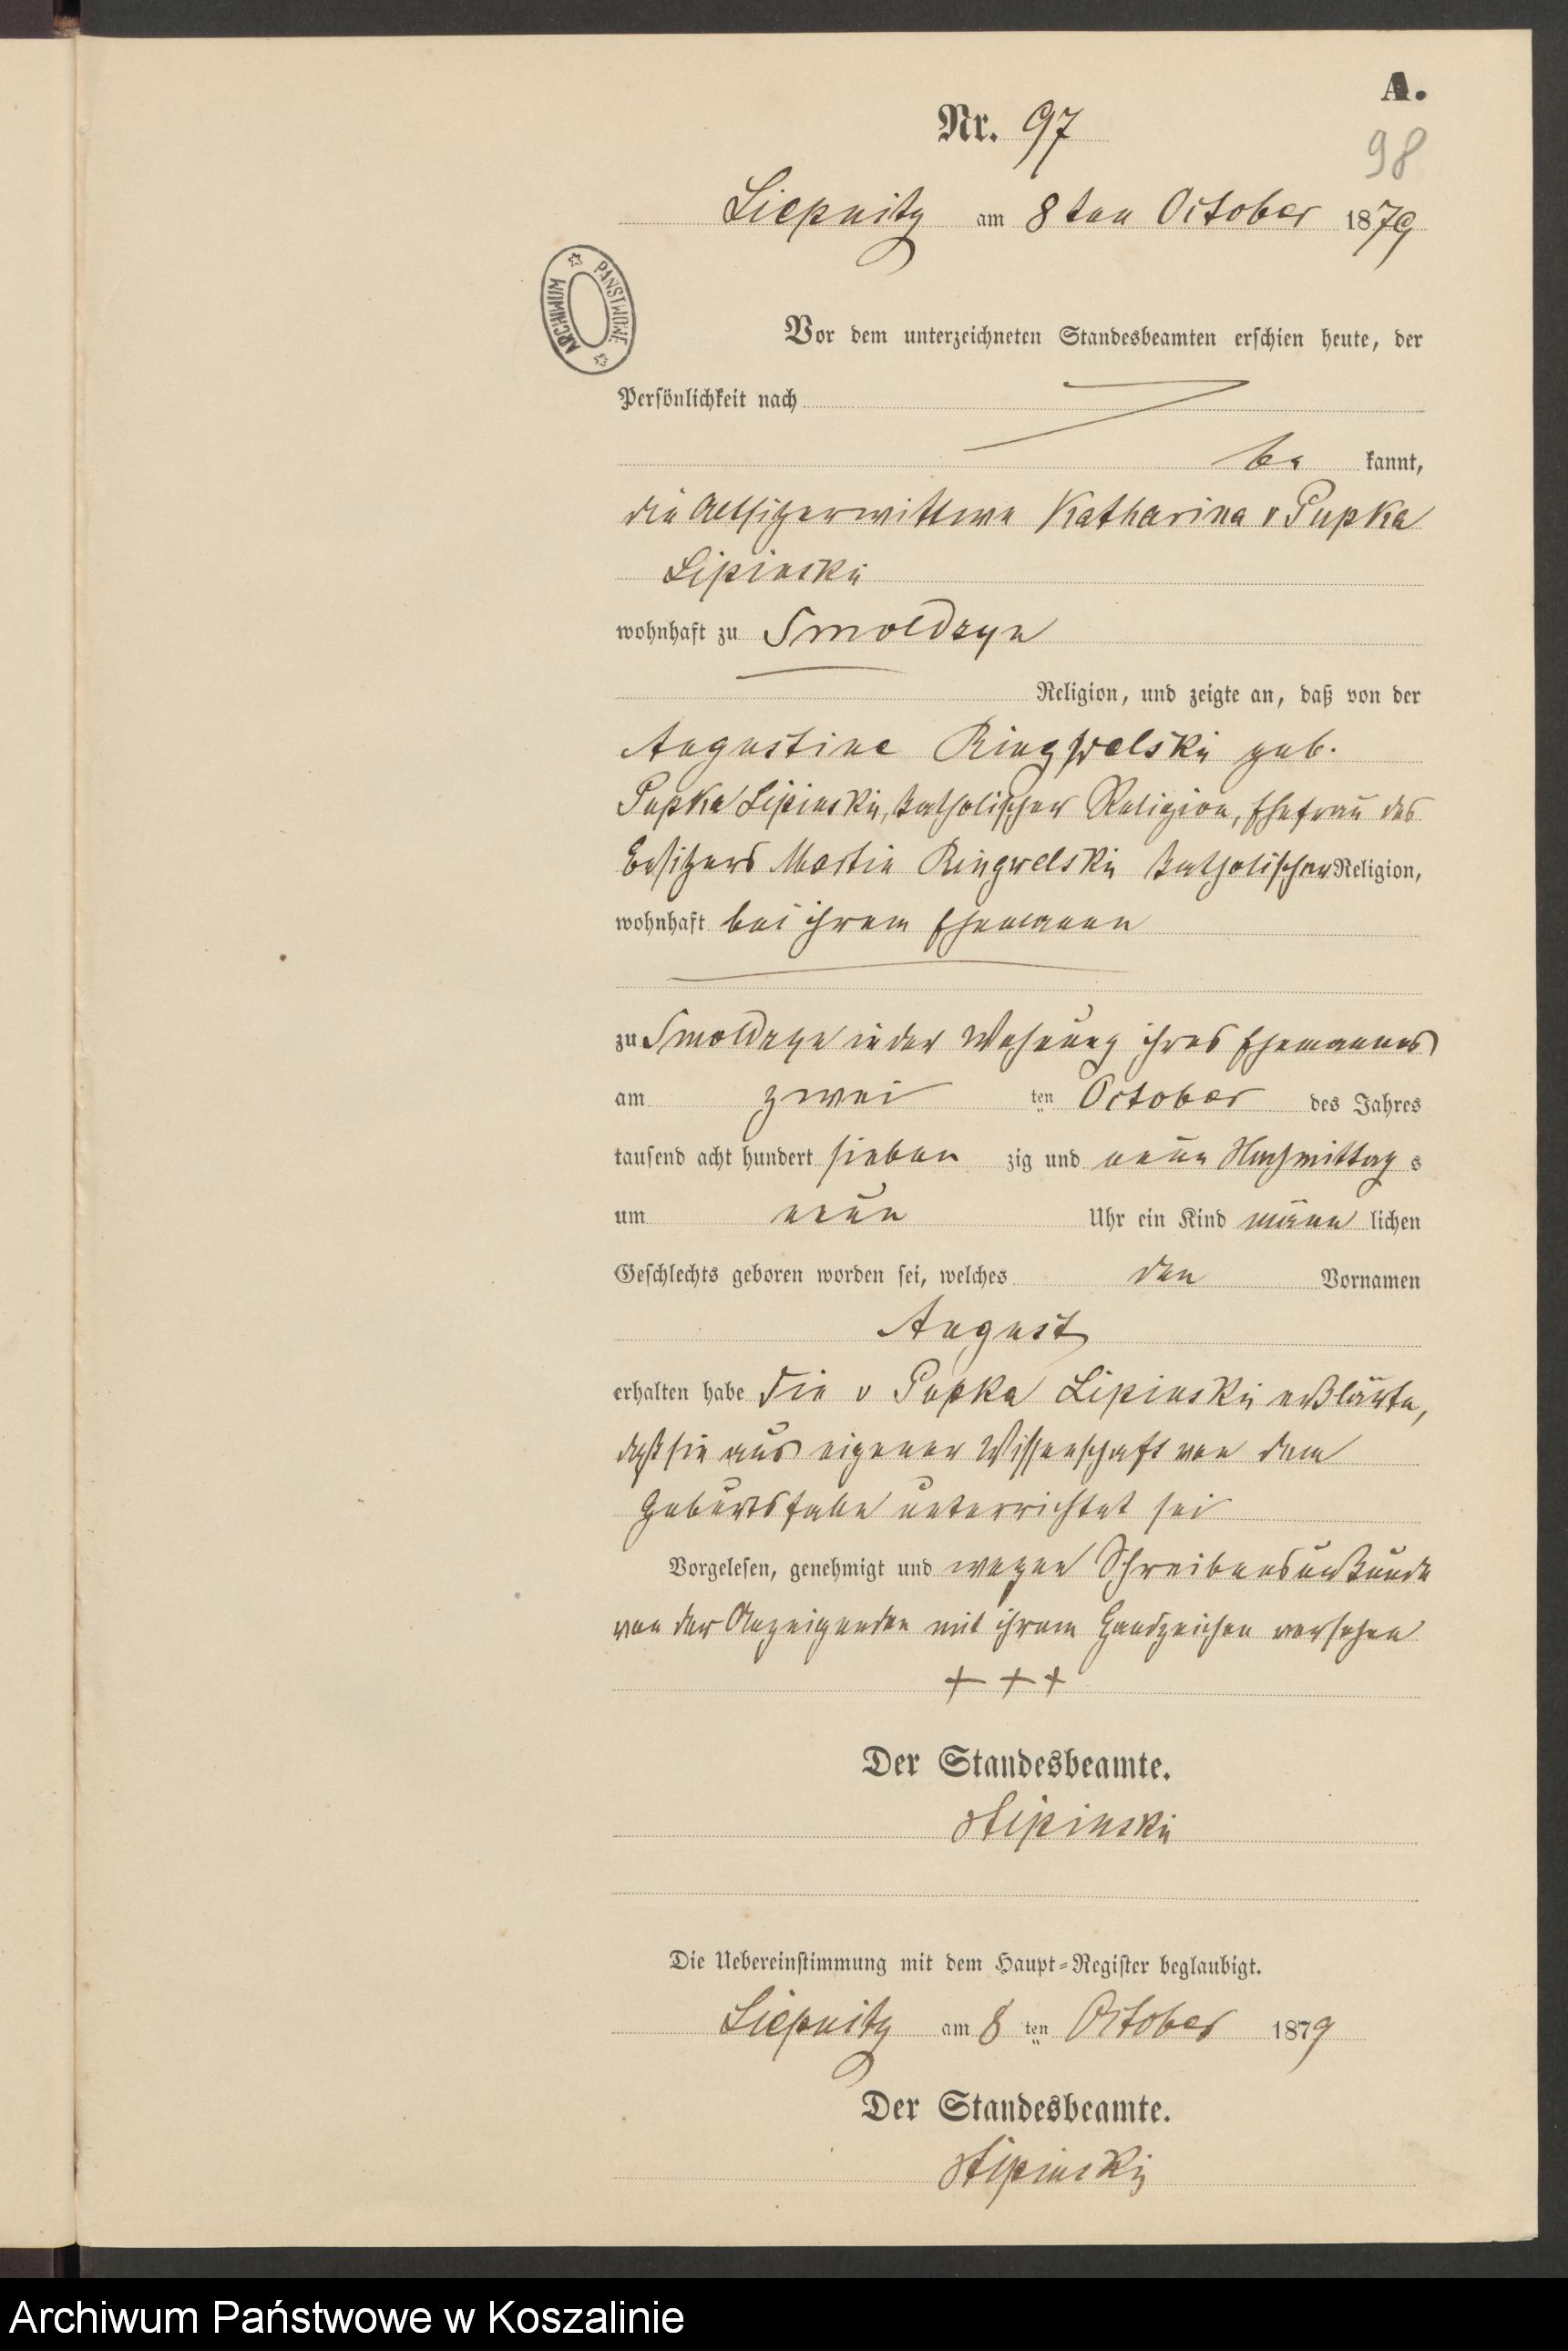 A.
Nr. 97
98
Liepnitz am 8ten October 1879
ARCHIWUM PAŃSTWOWE
Vor dem unterzeichneten Standesbeamten erschien heute, der
Persönlichkeit nach
be kannt,
die Altsitzerwittwe Katharina v Pupka
Lipinski
wohnhaft zu Smoldzyn
Religion, und zeigte an, daß von der
Augustine Ringwelski geb.
Pupka Lipinski, katholischer Religion, Ehefrau des
Besitzers Martin Ringwelski katholischer Religion,
wohnhaft bei ihrem Ehemann
zu Smoldzyn in der Wohnung ihres Ehemannes
am zwei ten October des Jahres
tausend acht hundert sieben zig und neun Nachmittag s
um neun Uhr ein Kind männ lichen
Geschlechts geboren worden sei, welches den Vornamen
August
erhalten habe Die v Pupka Lipinski erklärte,
daß sie aus eigener Wissenschaft von dem
Geburtsfalle unterrichtet sei
Vorgelesen, genehmigt und wegen Schreibensunkunde
von der Anzeigenden mit ihrem Handzeichen versehen
+ + +
Der Standesbeamte.
Lipinski
Die Uebereinstimmung mit dem Haupt-Register beglaubigt.
Liepnitz am 8 ten October 1879
Der Standesbeamte.
Lipinski
Archiwum Państwowe w Koszalinie